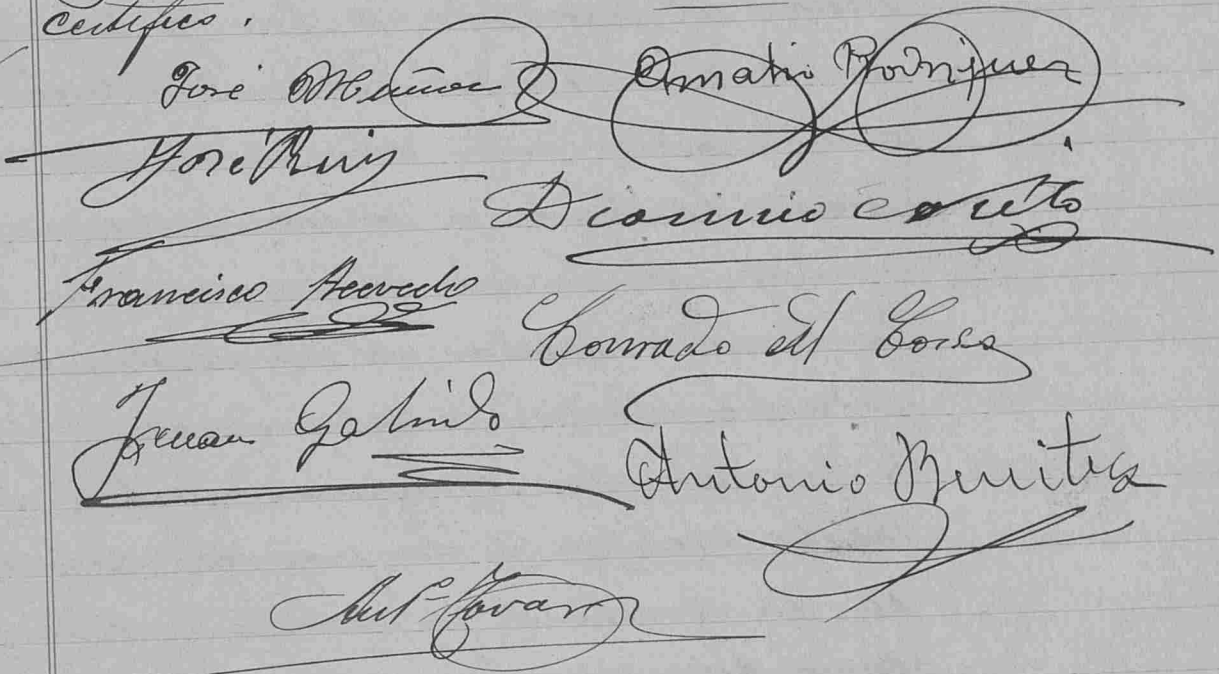 Certifico.
José Muñoz
Amatio Rodriguez
José Ruiz
Francisco Acevedo
Conrado del Corra
Juan Galindo
Antonio Benitez
Antº Tovar